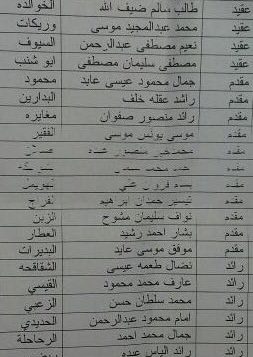 عقيد طالب سالم ضيف الله الخوالده
عقيد محمد عبدالمجيد موسى وريكات
عقيد نعيم مصطفى عبدالرحمن السيوف
عقيد مصطفى سليمان مصطفى ابو شنب
مقدم جمال محمود عيسى عابد محمود
مقدم راشد عقله خلف البدارين
مقدم رائد منصور صفوان مغايره
مقدم موسى يونس موسى الفقير
مقدم
مقدم
مقدم
مقدم تيسير حمدان ابراهيم
مقدم نواف سليمان مشوح الزبن
مقدم بشار احمد رشيد العطار
مقدم موفق موسى عابد البديرات
رائد نضال طعمه عيسى الشقاقحه
رائد عارف محمد محمود القيسي
رائد محمد سلطان حسن الزعبي
رائد امام محمود عبدالرحمن الحديدي
رائد جمال محمد احمد الرحاحلة
رائد رائد الياس عبده